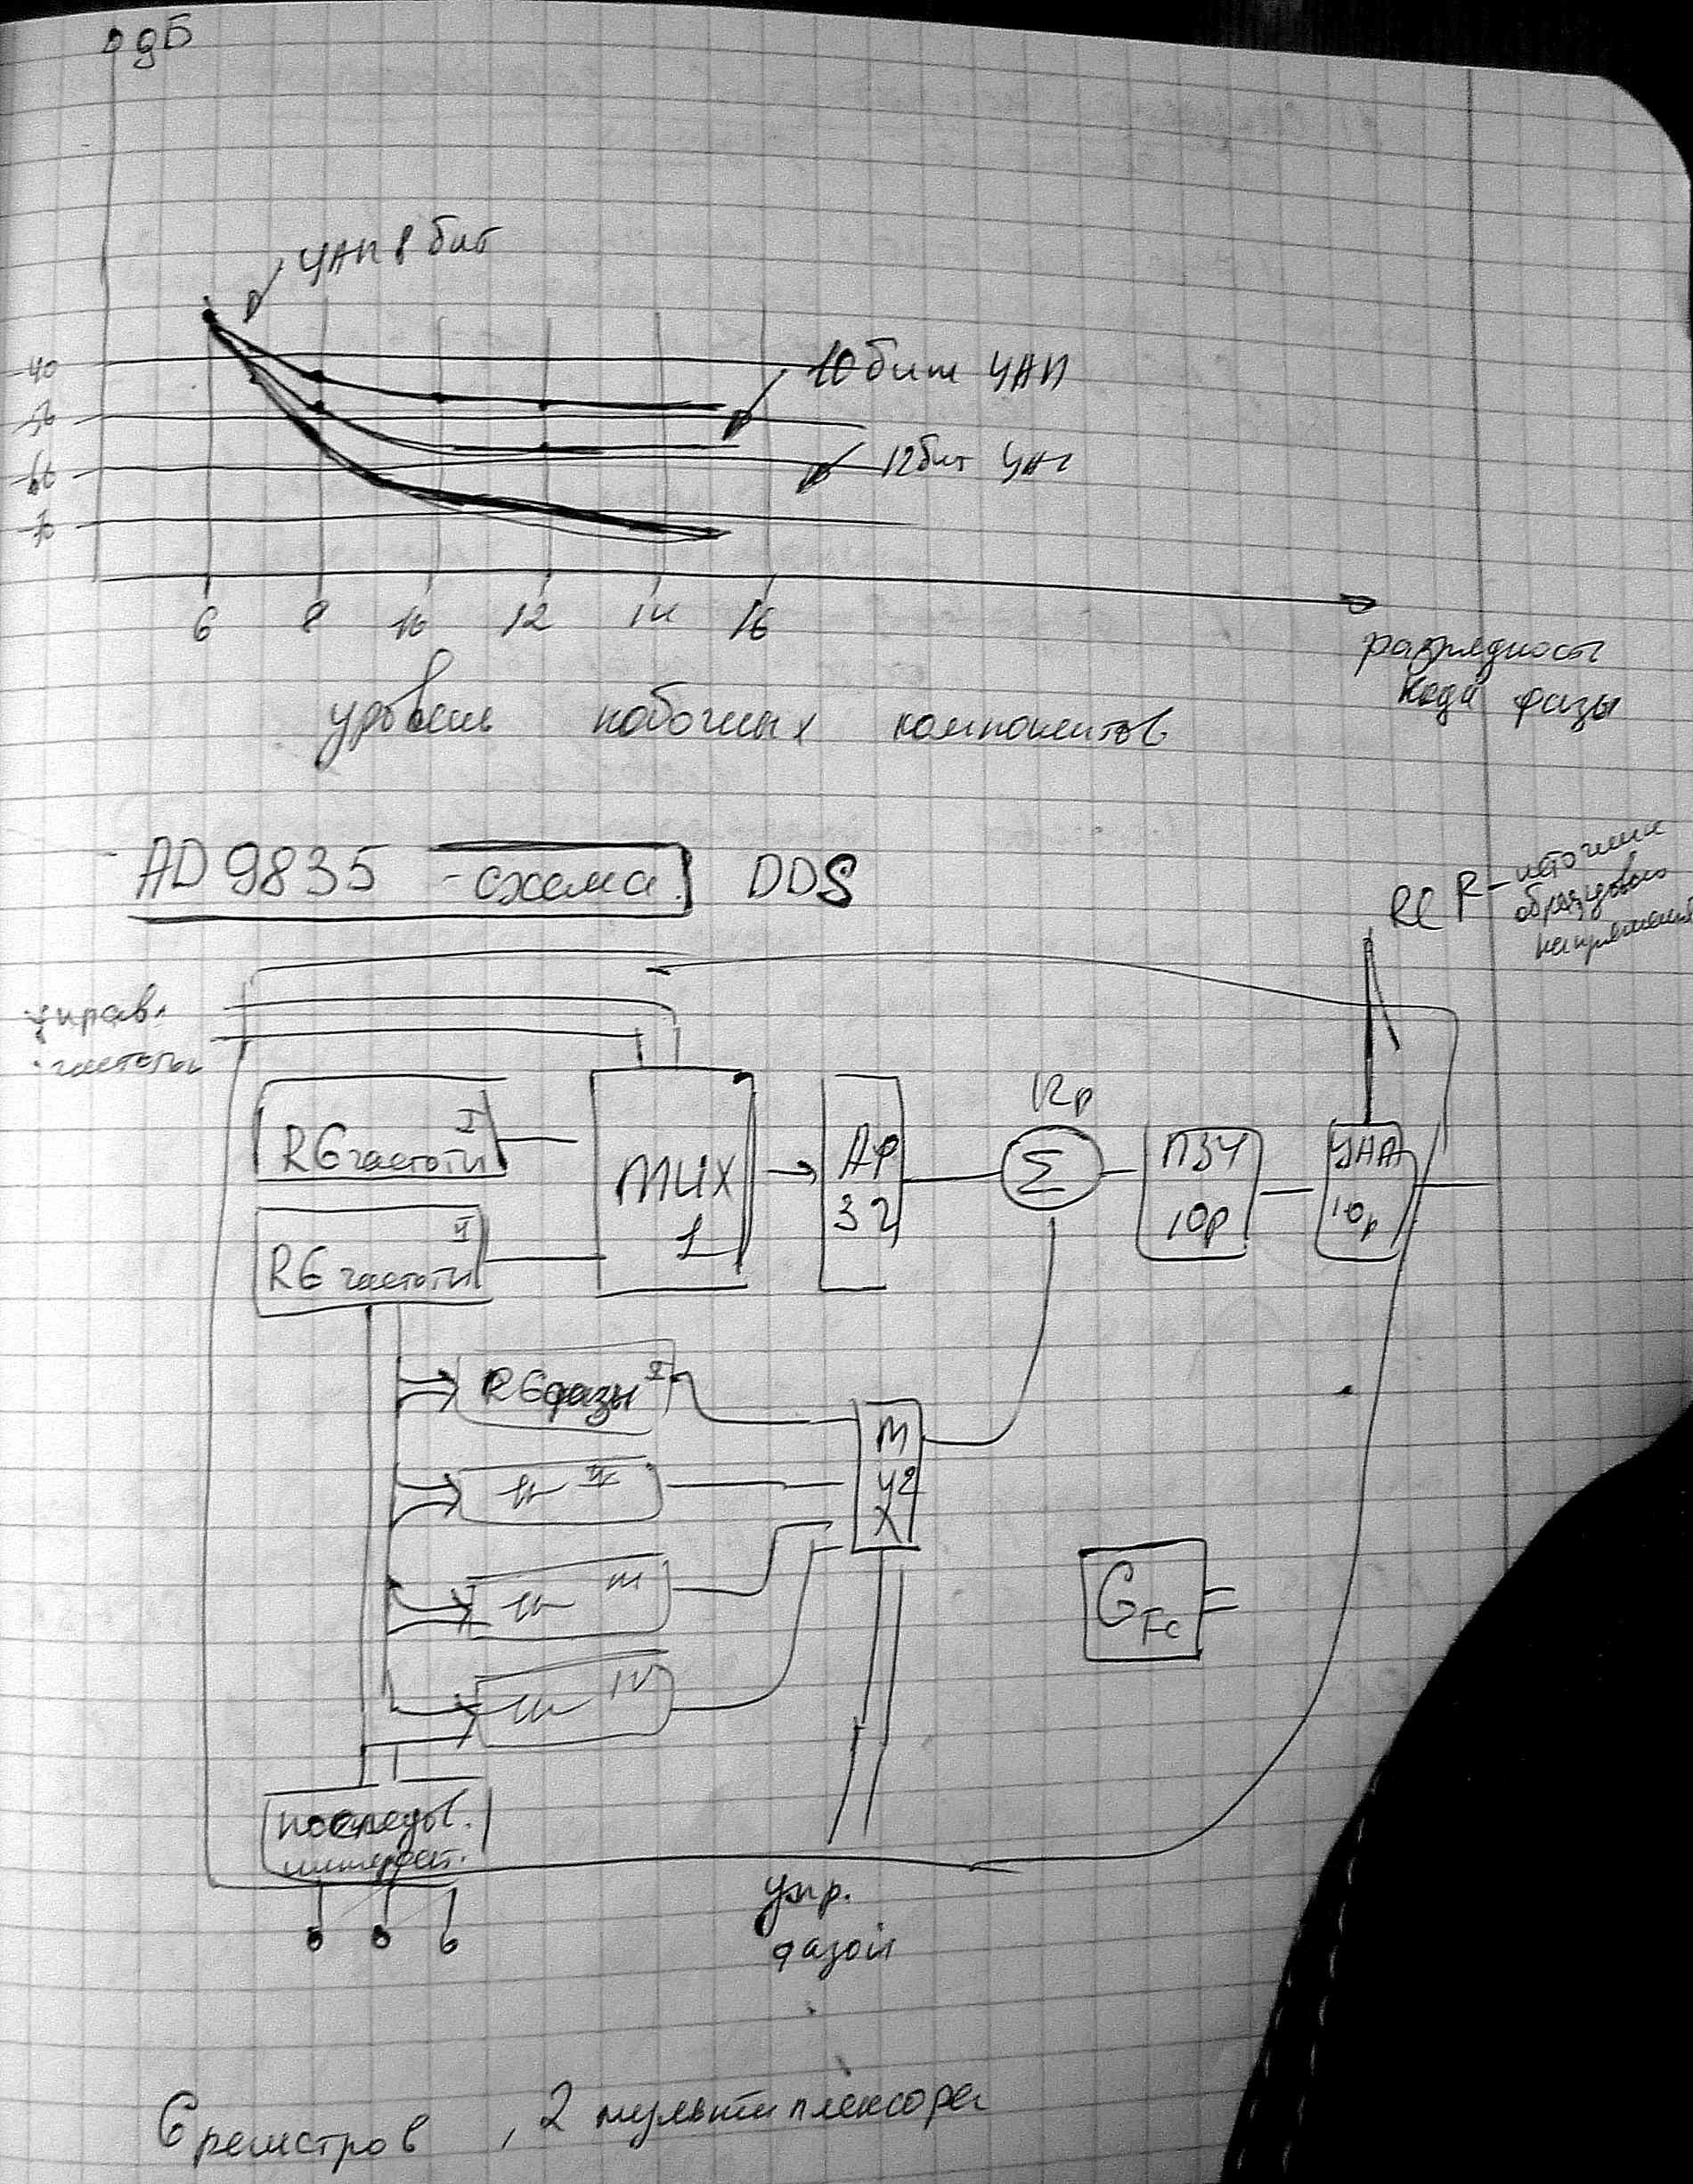 дБ
ЦАП 8 бит
-40
10 бит ЦАП
-50
12 бит ЦАП
-60
-70
6 8 10 12 14 16
разрядность
кода фазы
уровень побочных компонентов
AD9835 - схема DDS
REF - источник
образцового
напряжений
управ.
частоты
RG частоты I
MUX
1
АФ
32
Σ
ПЗУ
10р
ЦАП
10р
RG частоты II
RG фазы I
-//- II
MUX
2
-//- III
-//- IV
G Fc
последов.
интерфейс.
упр.
фазой
6 регистров, 2 мультиплексора